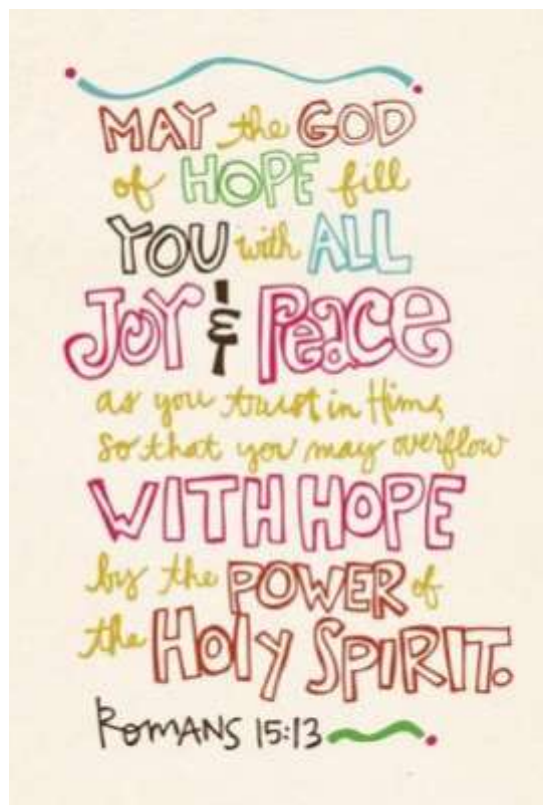 MAY the GOD
of HOPE fill
YOU with ALL
JOY & Peace
as you trust in Him,
so that you may overflow
WITH HOPE
by the POWER of
the Holy SPIRIT.
ROMANS 15:13